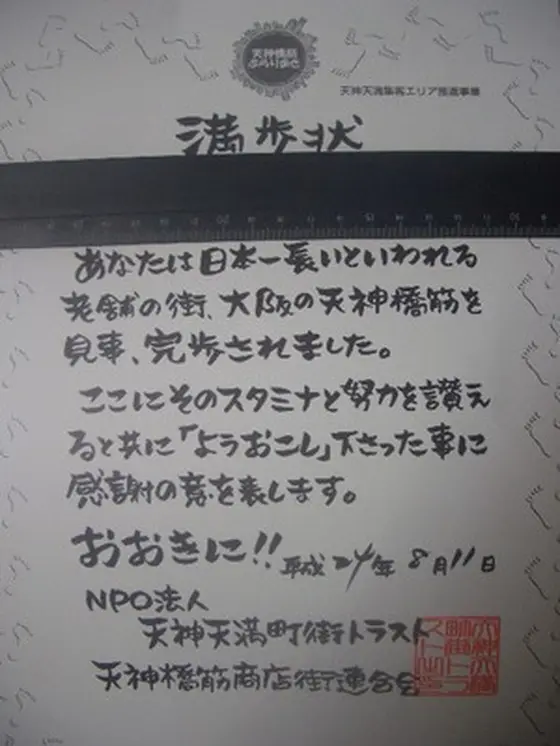 天神橋筋
ぶらりまち
天神天満集客エリア推進事業
満歩状
あなたは日本一長いといわれる
老舗の街、大阪の天神橋筋を
見事、完歩されました。
ここにそのスタミナと努力を讃え
ると共に「ようおこし」下さった事に
感謝の意を表します。
おおきに!!
平成24年8月11日
NPO法人
天神天満町街トラスト
天神橋筋商店街連合会